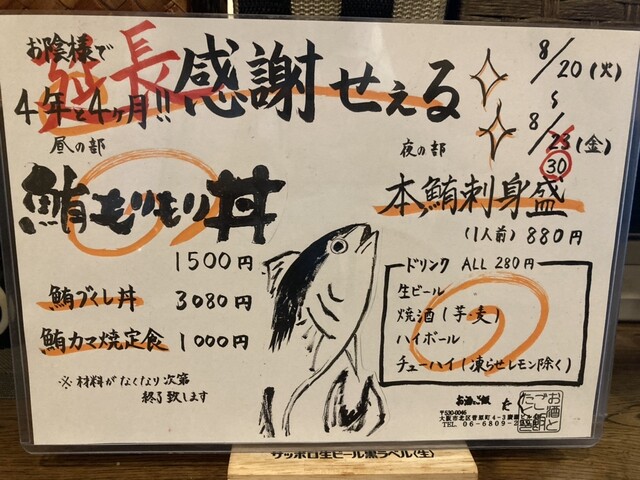 お陰様で
4年と4ヶ月!!
延長
感謝せえる
8/20(火)
~
8/23(金)
30
昼の部
鮪もりもり丼
1500円
鮪づくし丼 3080円
鮪カマ焼定食 1000円
※材料がなくなり次第
終了致します
夜の部
本鮪刺身盛
(1人前) 880円
ドリンク ALL 280円
生ビール
焼酎(芋・麦)
ハイボール
チューハイ(凍らせレモン除く)
お酒とご飯
〒530-0046
大阪市北区菅原町4-3
TEL 06-6809-2
お酒と
ご飯
サッポロ生ビール黒ラベル〈生〉